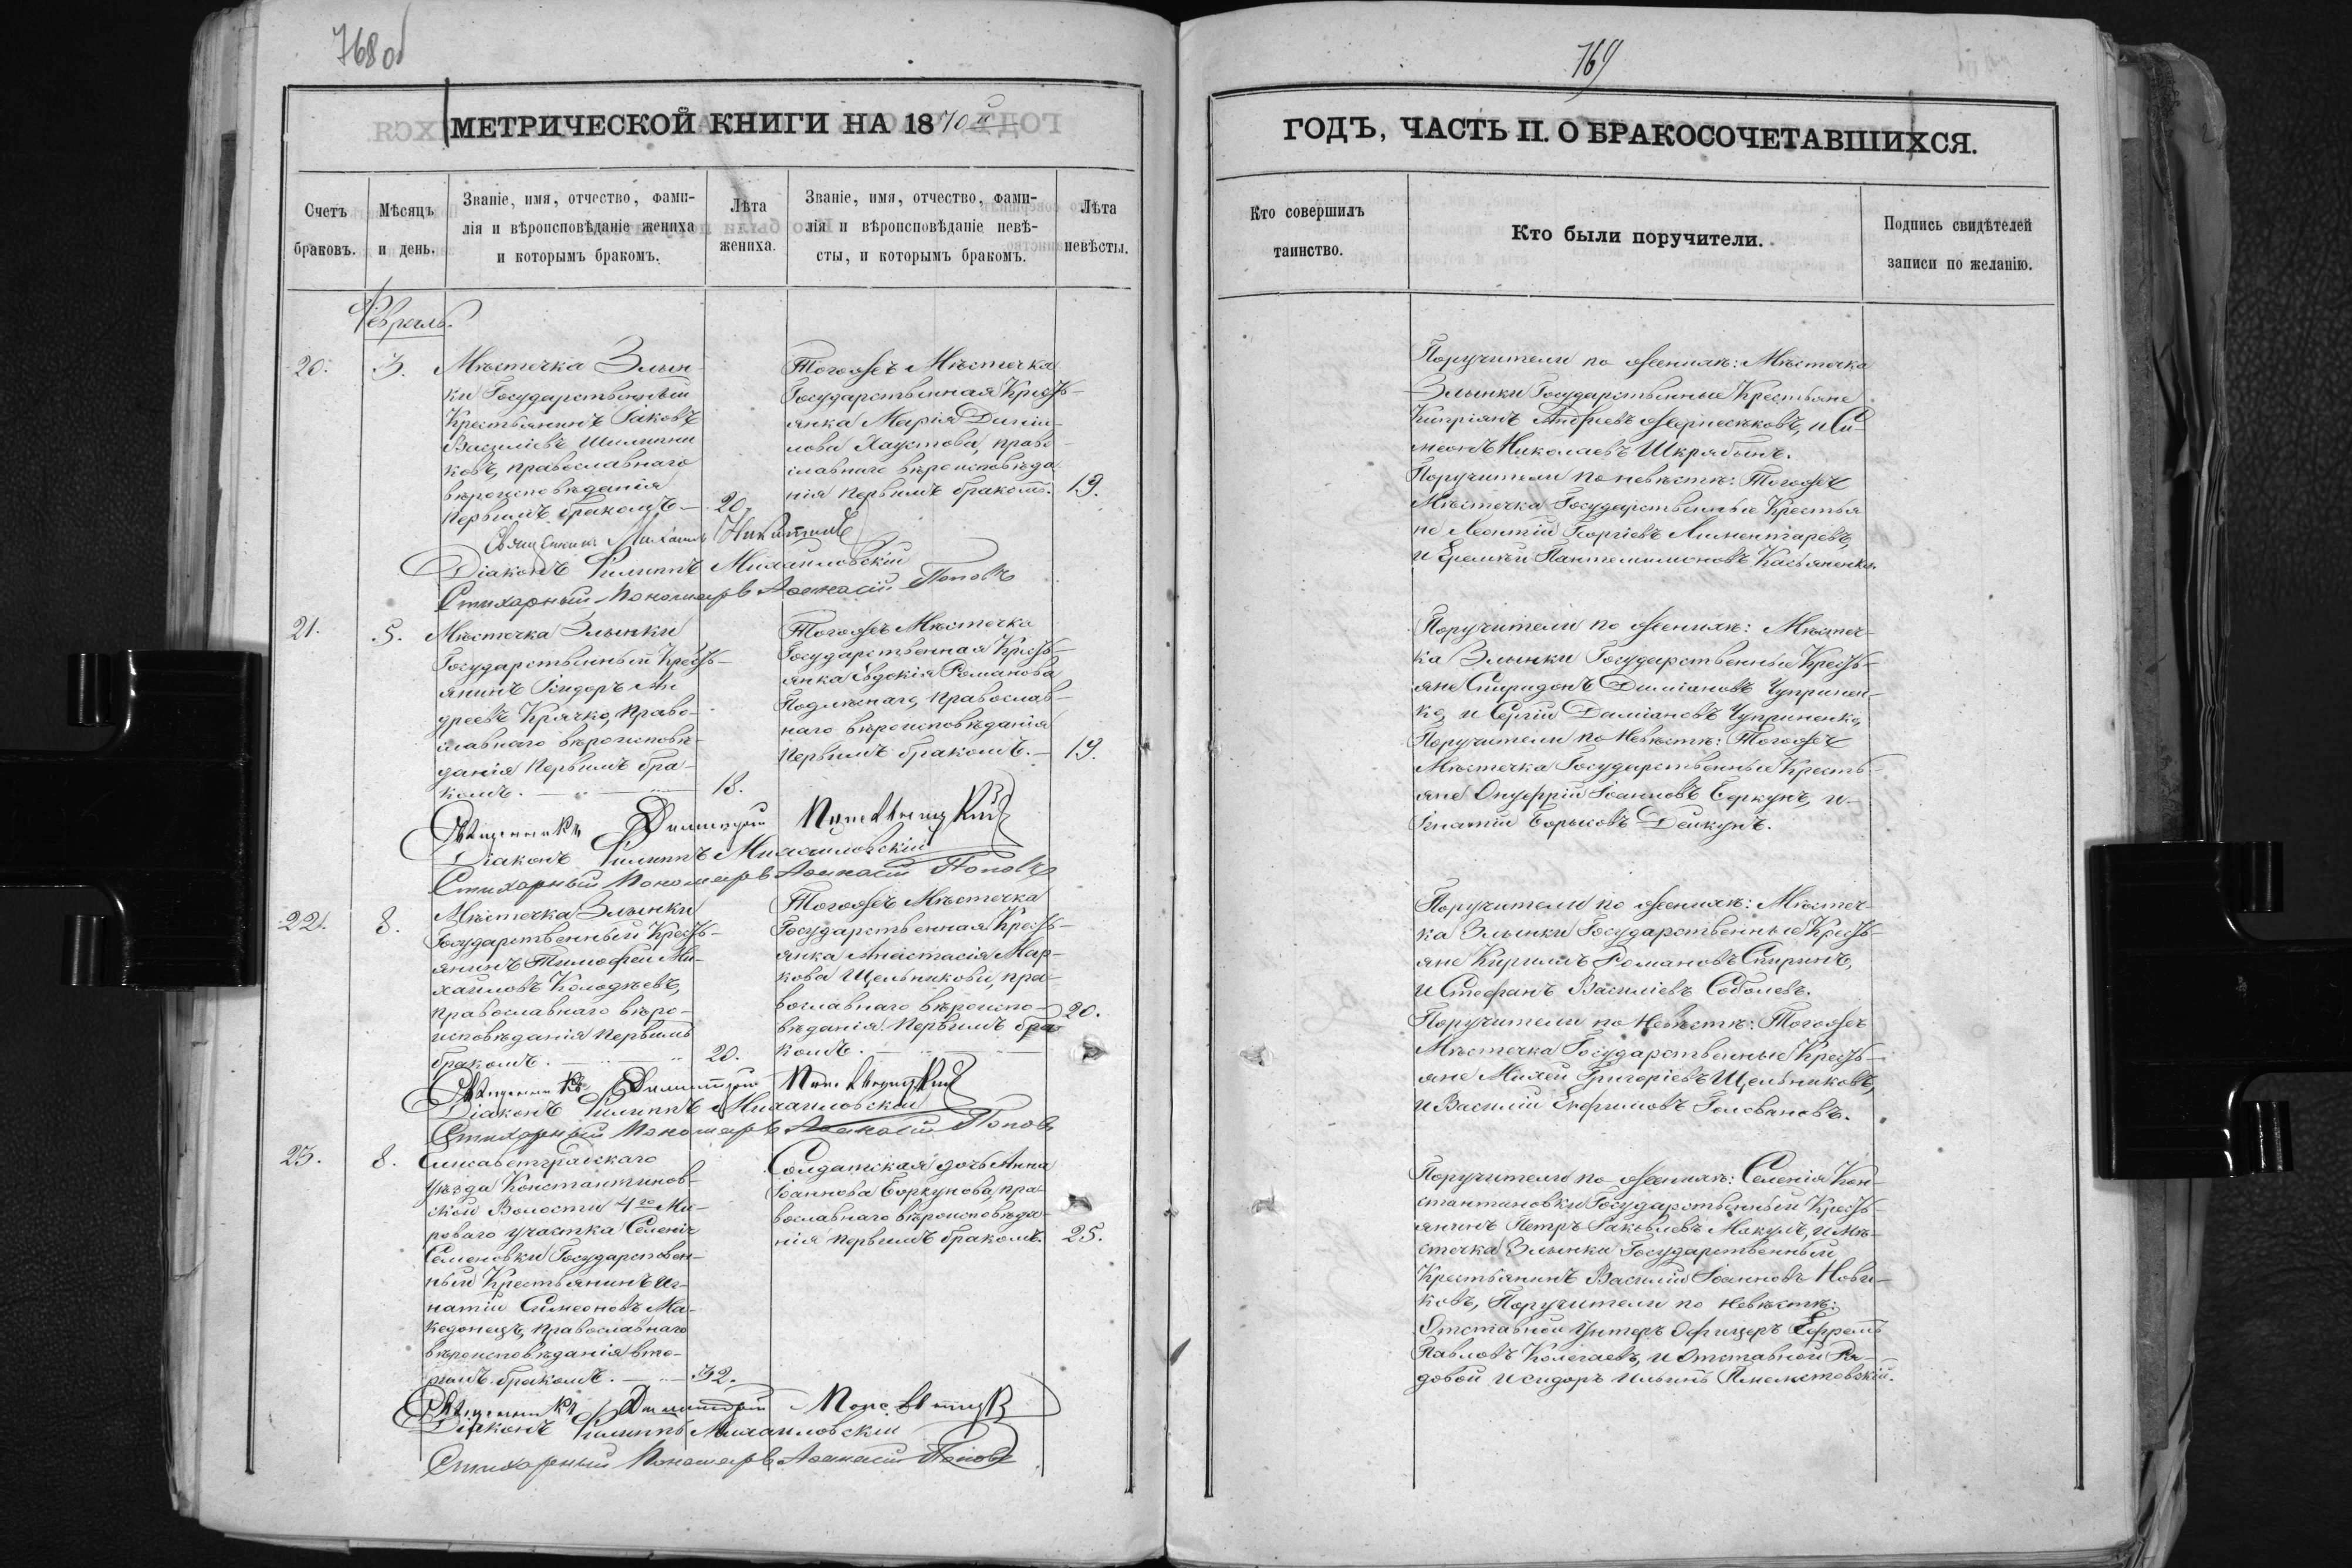 768 об
МЕТРИЧЕСКОЙ КНИГИ НА 1870й
Счетъ браковъ.
Мѣсяцъ и день.
Званіе, имя, отчество, фами-
лія и вѣроисповѣданіе жениха
и которымъ бракомъ.
Лѣта жениха.
Званіе, имя, отчество, фами-
лія и вѣроисповѣданіе невѣ-
сты, и которымъ бракомъ.
Лѣта невѣсты.
Февраль.
20.
3.
Мѣстечка Злын-
ки Государственный
Крестьянинъ Іаковъ
Василіевъ
ковъ, православнаго
вѣроисповѣданія
первымъ бракомъ —
20.
Тогожъ Мѣстечка
Государственная Кресть-
янка Марія Даніи-
лова Хаустова, право-
славнаго вѣроисповѣда-
нія первымъ бракомъ.
19.
Священникъ Михаилъ Никитинъ
Діаконъ Филиппъ Михаиловскій
Стихарный Пономарь Аѳанасій Поповъ
21.
5.
Мѣстечка Злынки
Государственный Кресть-
янинъ Исидоръ Ан-
дреевъ Крячко, право-
славнаго вѣроисповѣ-
данія первымъ бра-
комъ. —
18.
Тогожъ Мѣстечка
Государственная Кресть-
янка Евдокія Романова
Подлѣснаго, православ-
наго вѣроисповѣданія
первымъ бракомъ. —
19.
Священникъ Димитрій
Діаконъ Филиппъ Михаиловскій
Стихарный Пономарь Аѳанасій Поповъ
22.
8.
Мѣстечка Злынки
Государственный Кресть-
янинъ Тимофей Ми-
хаиловъ Колодѣевъ,
православнаго вѣро-
исповѣданія первымъ
бракомъ. —
20.
Тогожъ Мѣстечка
Государственная Кресть-
янка Анастасія Мар-
кова Щельникова, пра-
вославнаго вѣроиспо-
вѣданія первымъ бра-
комъ. —
20.
Священникъ Димитрій
Діаконъ Филиппъ Михаиловскій
Стихарный Пономарь Аѳанасій Поповъ
23.
8.
Елисаветградскаго
уѣзда Константинов-
ской Волости 4го Ми-
роваго участка Селенія
Семеновки Государствен-
ный Крестьянинъ Иг-
натій Симеоновъ Ма-
кедонецъ, православнаго
вѣроисповѣданія вто-
рымъ бракомъ. —
32.
Солдатская дочь Анна
Іоаннова Боркунова, пра-
вославнаго вѣроисповѣда-
нія первымъ бракомъ.
25.
Священникъ Димитрій
Діаконъ Филиппъ Михаиловскій
Стихарный Пономарь Аѳанасій Поповъ
769
ГОДЪ, ЧАСТЬ II. О БРАКОСОЧЕТАВШИХСЯ.
Кто совершилъ таинство.
Кто были поручители.
Подпись свидѣтелей записи по желанію.
Поручители по женихѣ: Мѣстечка
Злынки Государственные Крестьяне
Кипріянъ Андреевъ и Си-
меонъ Николаевъ Шкрябынъ.
Поручители по невѣстѣ: Тогожъ
Мѣстечка Государственные Крестья-
не Леонтій Георгіевъ
и Еремѣй Пантелимоновъ Касьяненко.
Поручители по женихѣ: Мѣстеч-
ка Злынки Государственные Кресть-
яне Спиридонъ Даміановъ Чупринен-
ко, и Сергій Даміановъ Чуприненко,
Поручители по невѣстѣ: Тогожъ
Мѣстечка Государственные Кресть-
яне Онуфрій Іоанновъ Беркунъ, и
Игнатій Борисовъ Дейкунъ.
Поручители по женихѣ: Мѣстеч-
ка Злынки Государственные Кресть-
яне Кириллъ Романовъ Спиринъ,
и Стефанъ Василіевъ Соболевъ.
Поручители по невѣстѣ: Тогожъ
Мѣстечка Государственные Кресть-
яне Михей Григоріевъ Щельниковъ,
и Василій Ефимовъ Головановъ.
Поручители по женихѣ: Селенія Кон-
стантиновки Государственный Кресть-
янинъ Петръ Іаковлевъ Макулъ, и Мѣ-
стечка Злынки Государственный
Крестьянинъ Василій Іоанновъ Нови-
ковъ, Поручители по невѣстѣ:
Отставной Унтеръ Офицеръ Ефремъ
Павловъ Колегаевъ, и Отставной Ря-
довой Исидоръ Ильинъ